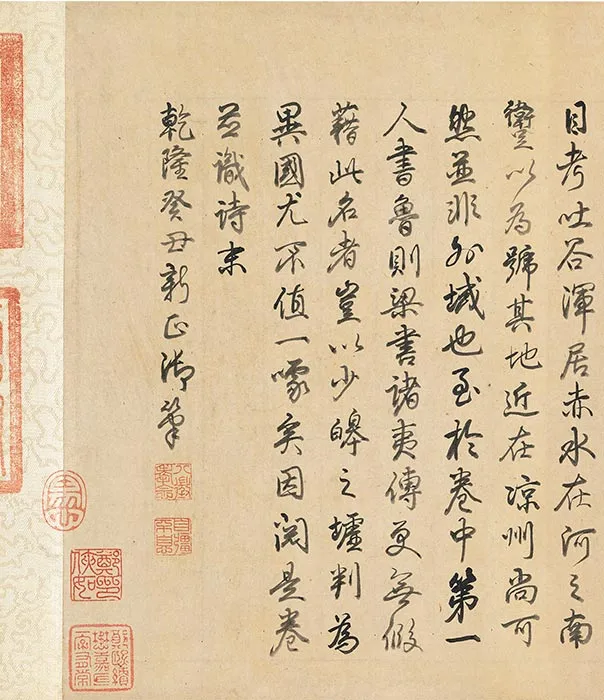 目考吐谷渾居赤水在河之南
以為號其地近在凉州尚可
然並非外域也至於卷中第一
人書魯則梁書諸夷傳更無假
藉此名者豈以少皞之墟判為
異國尤不值一噱矣因閱是卷
並識詩末
乾隆癸丑新正御筆
八徵耄念
自彊不息